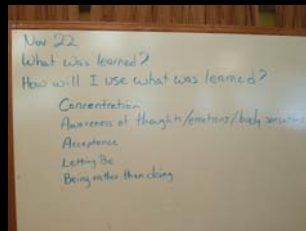 Nov 22
What was learned?
How will I use what was learned?
Concentration
Awareness of thoughts/emotions/body sensations
Acceptance
Letting Be
Being rather than doing